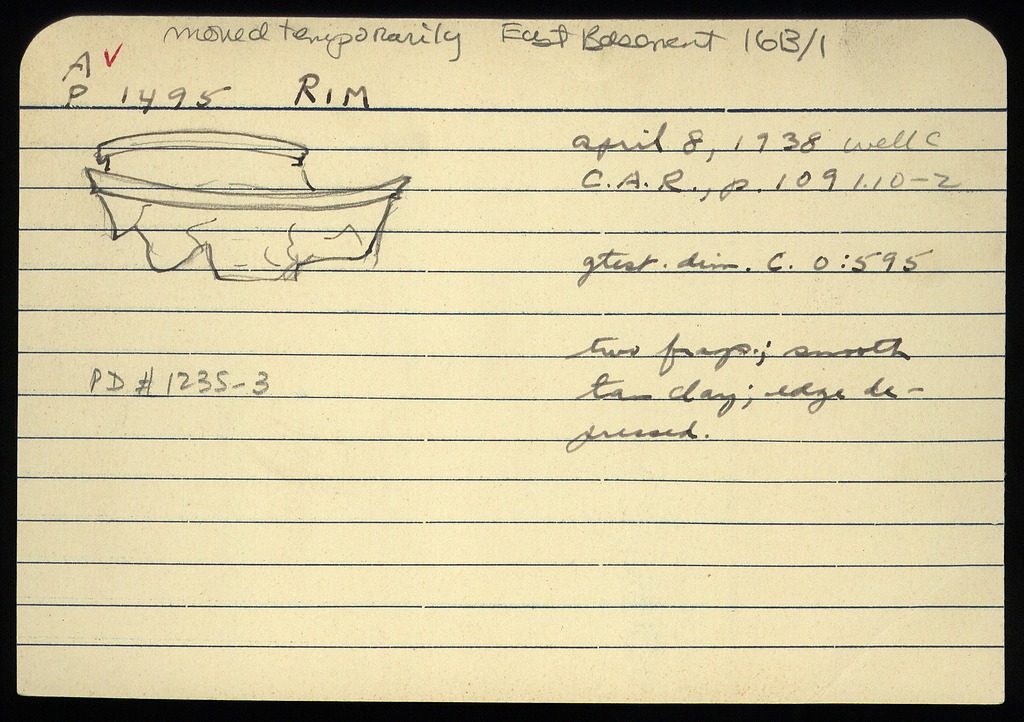 moved temporarily East Basement 16B/1
A ✓
P 1495 RIM
april 8, 1938 well C
C.A.R., p. 109 1.10-2
gtest. dim. C. 0:595
two frags.; smooth
tan clay; edge de-
pressed.
PD # 1235-3